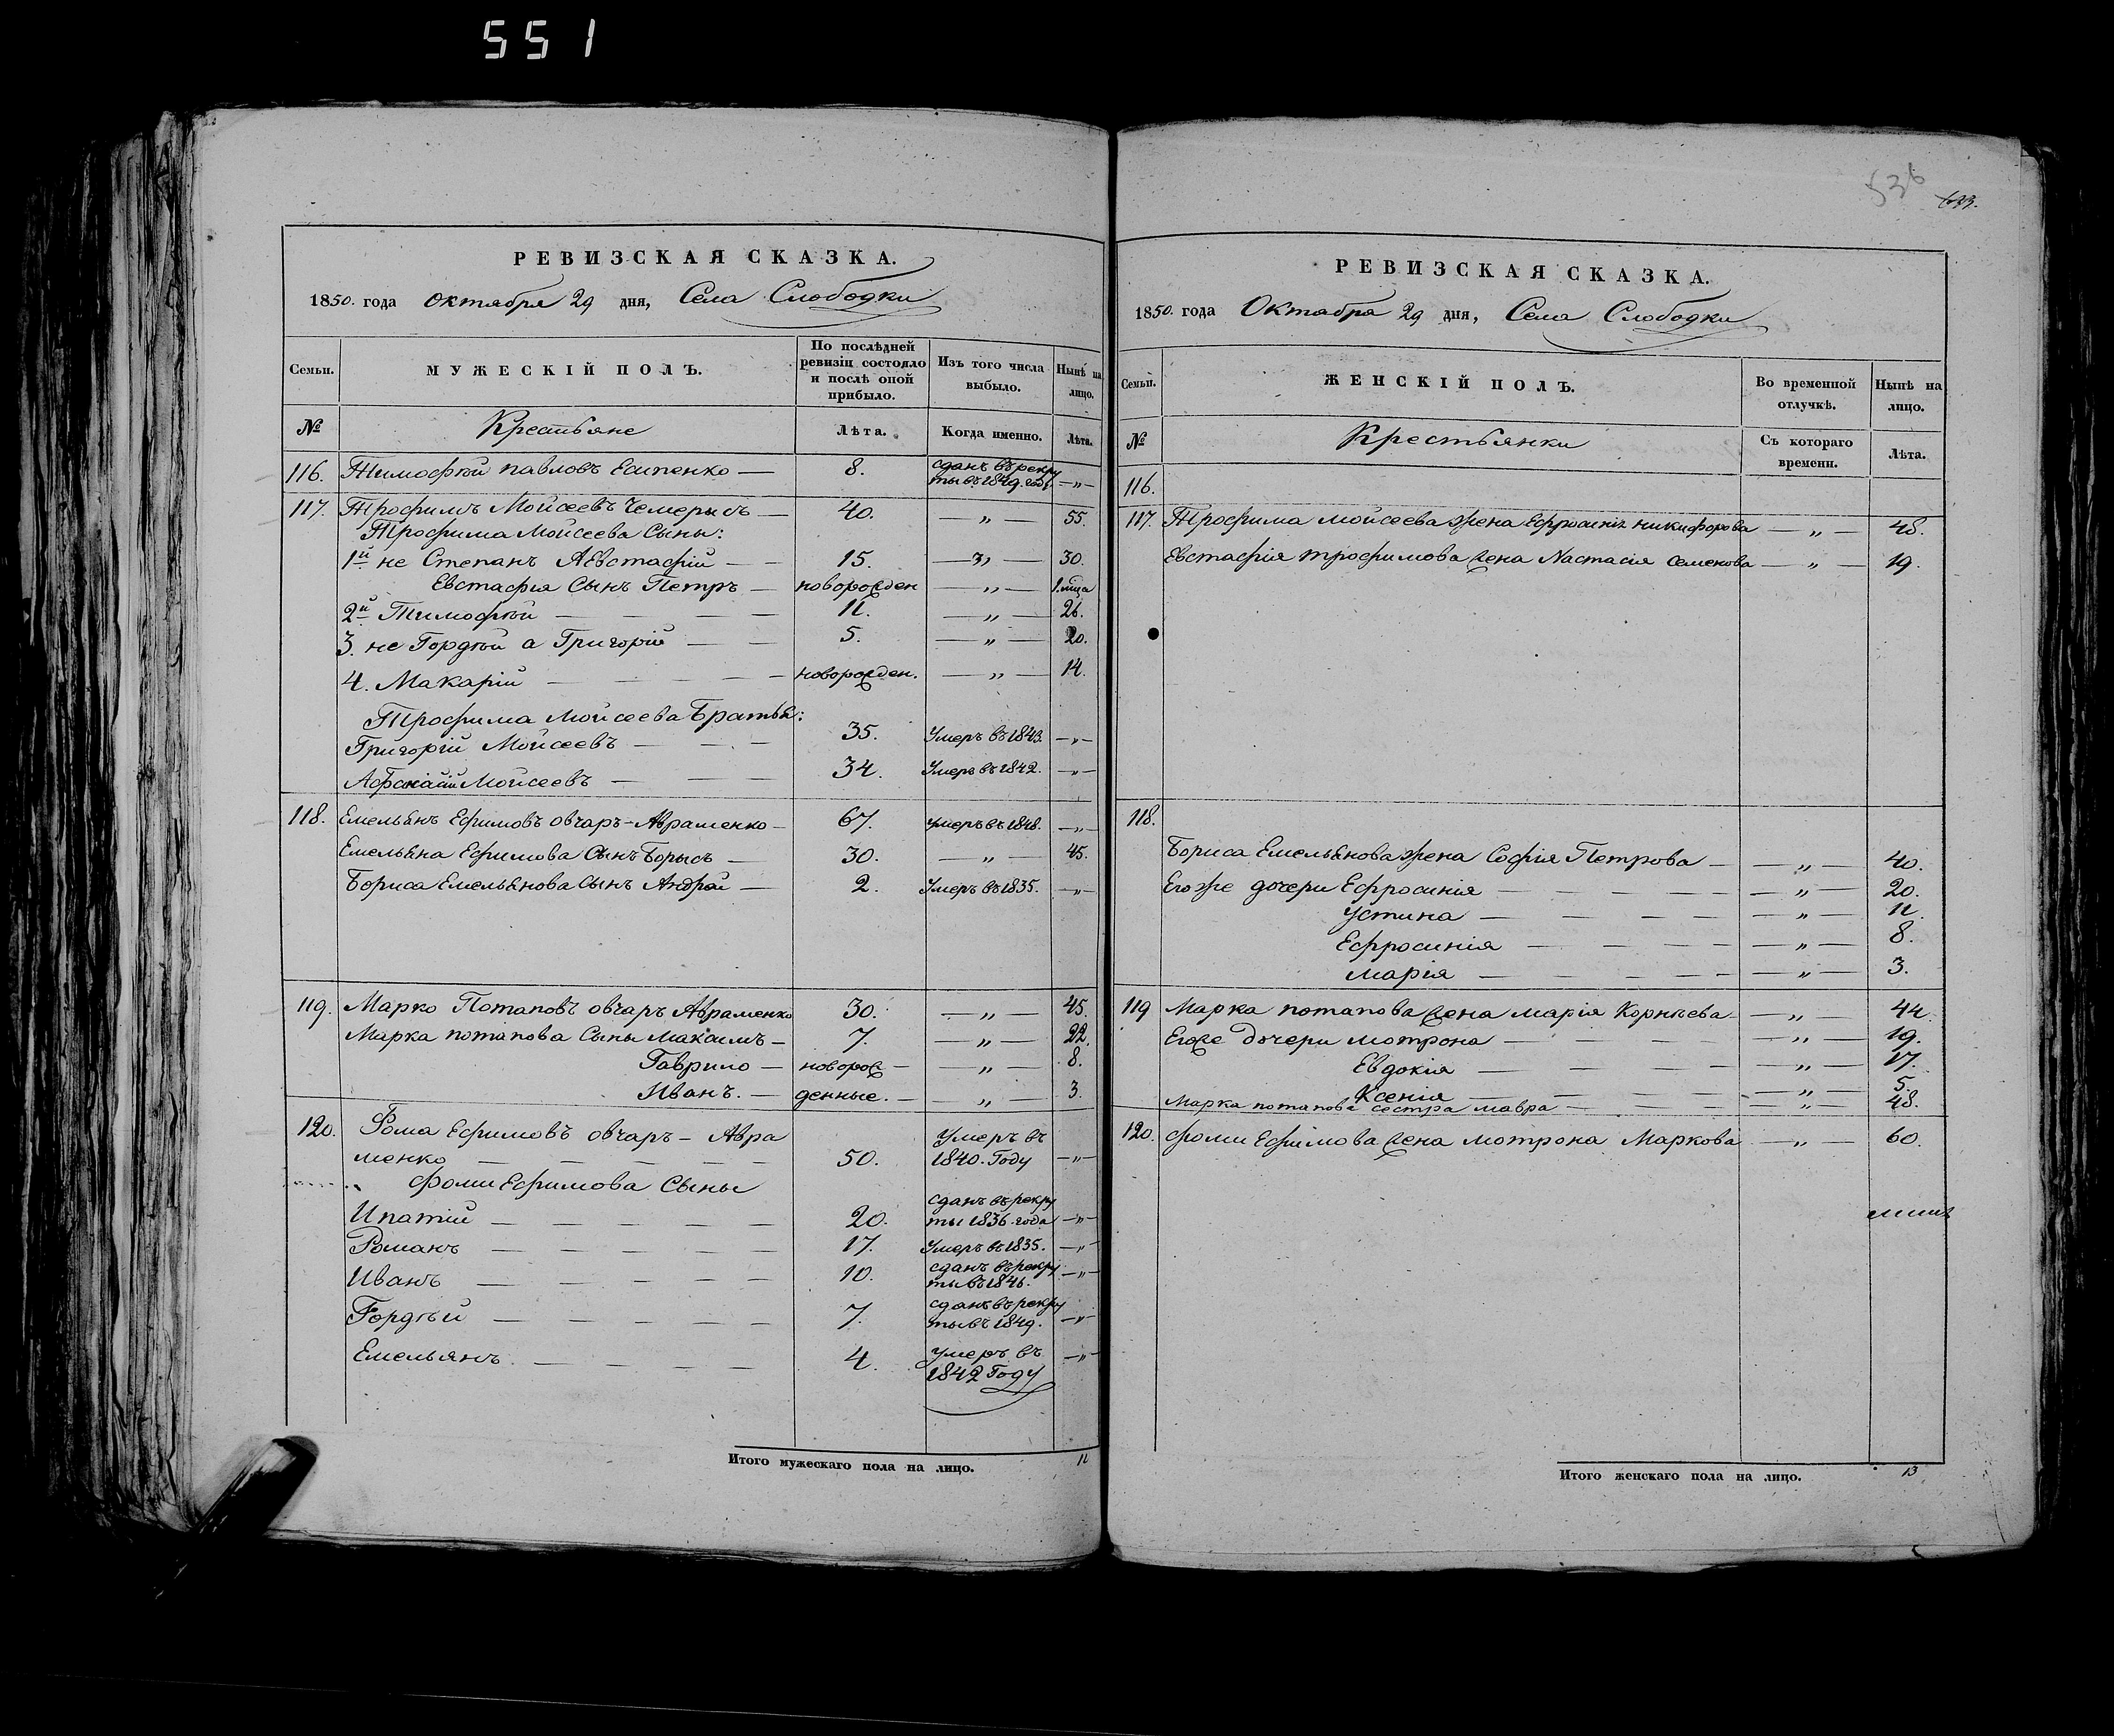 551
РЕВИЗСКАЯ СКАЗКА.
1850. года Октября 29 дня, Села Слободки
Семьи. МУЖЕСКІЙ ПОЛЪ. По послѣдней ревизіи состояло и послѣ оной прибыло. Изъ того числа выбыло. Нынѣ на лицо.
№ Крестьяне Лѣта. Когда именно. Лѣта.
116. Тимофѣй павловъ Есипенко — 8. сданъ въ рекру
ты въ 1849. году — „ —
117. Трофимъ Мойсеевъ Чемерысъ — 40. — „ — 55.
Трофима Мойсеева Сыны:
1й не Степанъ А Евстафій — — 15. — „ — 30.
Евстафія Сынъ Петръ — новорожден — „ — 1. мца
2й Тимофѣй — — — — 11. — „ — 26.
3. не Гордѣй а Григорій — — 5. — „ — 20.
4. Макарій — — — — новорожден. — „ — 14.
Трофима Мойсеева Братья:
Григорій Мойсеевъ — — — 35. Умеръ въ 1843. — „ —
Мойсеевъ — — — 34. Умеръ въ 1842. — „ —
118. Емельянъ Ефимовъ овчаръ - Авраменко — 67. умеръ въ 1848. — „ —
Емельяна Ефимова Сынъ Борысъ — 30. — „ — 45.
Бориса Емельянова Сынъ Андрей — 2. Умеръ въ 1835. — „ —
119. Марко Потаповъ овчаръ Авраменко 30. — „ — 45.
Марка потапова Сыны Максимъ — 7. — „ — 22.
Гаврило — новорож — — „ — 8.
Иванъ. — денные. — — „ — 3.
120. Фома Ефимовъ овчаръ — Авра Умеръ въ
менко — — — — — 50. 1840. Году — „ —
Фоми Ефимова Сыны
Ипатій — — — — — 20. сданъ въ рекру
ты 1836. года — „ —
Романъ — — — — — 17. Умеръ въ 1835. — „ —
Иванъ — — — — — 10. сданъ въ рекру
ты въ 1846. — „ —
Гордѣй — — — — — 7. сданъ въ рекру
ты въ 1849. — „ —
Емельянъ — — — — 4. умеръ въ
1842 Году — „ —
Итого мужескаго пола на лицо. 11
536 633.
РЕВИЗСКАЯ СКАЗКА.
1850. года Октября 29 дня, Села Слободки
Семьи. ЖЕНСКІЙ ПОЛЪ. Во временной отлучкѣ. Нынѣ на лицо.
№ Крестьянки Съ котораго времени. Лѣта.
116.
117. Трофима мойсеева жена Ефросинія никифорова — „ — 48.
Евстафія трофимова жена Настасія семенова — „ — 19.
118.
Бориса Емельянова жена Софія Петрова — — „ — 40.
Его же дочери Ефросинія — — — — — „ — 20.
Устина — — — — — „ — 11.
Ефросинія — — — — — „ — 8.
Марія — — — — — „ — 3.
119 Марка потапова жена марія Корнѣева — — „ — 44.
Егоже дочери мотрона — — — — — „ — 19.
Евдокія — — — — — „ — 17.
Ксенія — — — — — „ — 5.
Марка потапова сестра мавра — — — — „ — 48.
120. Фоми Ефимова жена мотрона Маркова — „ — 60.
Итого женскаго пола на лицо. 13